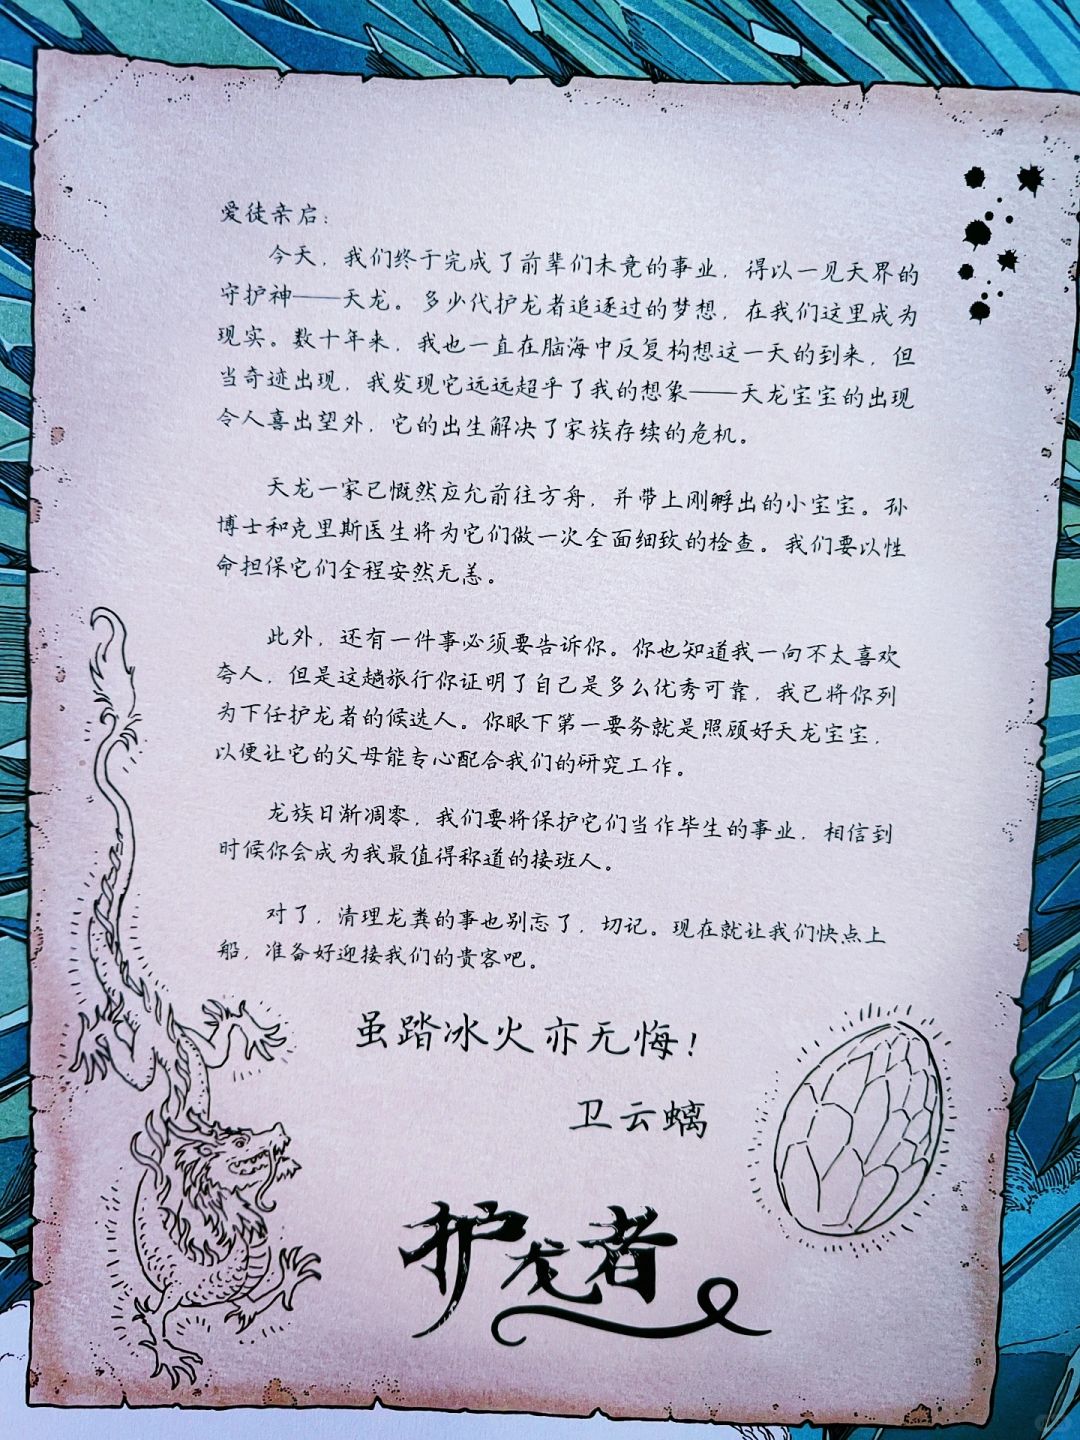 爱徒亲启：
今天，我们终于完成了前辈们未竟的事业，得以一见天界的
守护神——天龙。多少代护龙者追逐过的梦想，在我们这里成为
现实。数十年来，我也一直在脑海中反复构想这一天的到来，但
当奇迹出现，我发现它远远超乎了我的想象——天龙宝宝的出现
令人喜出望外，它的出生解决了家族存续的危机。
天龙一家已慨然应允前往方舟，并带上刚孵出的小宝宝。孙
博士和克里斯医生将为它们做一次全面细致的检查。我们要以性
命担保它们全程安然无恙。
此外，还有一件事必须要告诉你。你也知道我一向不太喜欢
夸人，但是这趟旅行你证明了自己是多么优秀可靠，我已将你列
为下任护龙者的候选人。你眼下第一要务就是照顾好天龙宝宝，
以便让它的父母能专心配合我们的研究工作。
龙族日渐凋零，我们要将保护它们当作毕生的事业，相信到
时候你会成为我最值得称道的接班人。
对了，清理龙粪的事也别忘了，切记。现在就让我们快点上
船，准备好迎接我们的贵客吧。
虽踏冰火亦无悔！
卫云螭
护龙者